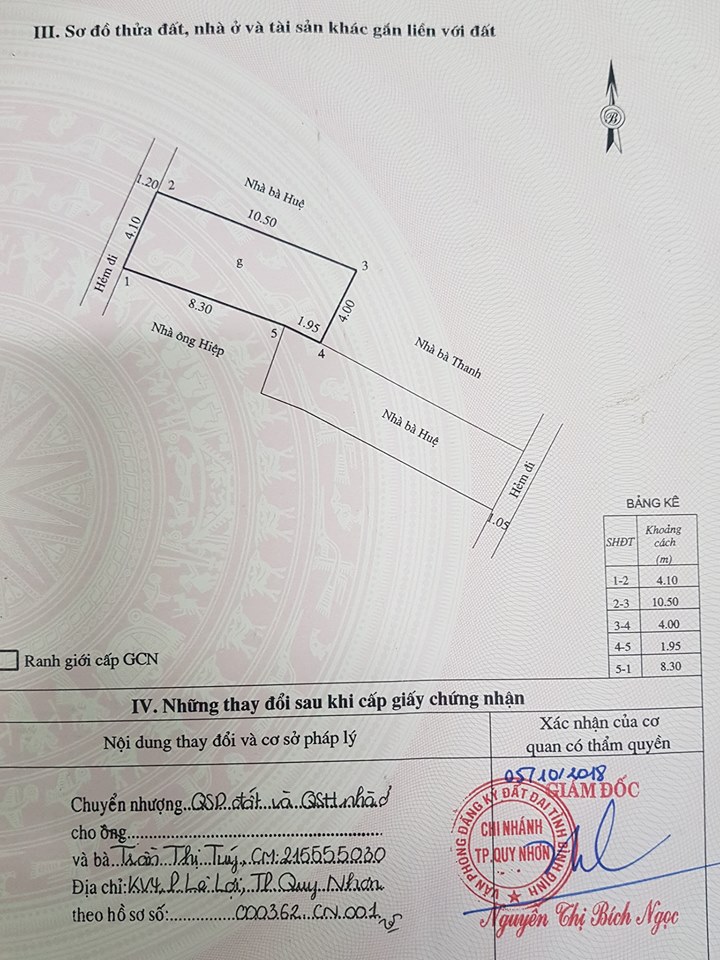 III. Sơ đồ thửa đất, nhà ở và tài sản khác gắn liền với đất
B
1.20 2
Nhà bà Huệ
10.50
4.10
g
3
Hẻm đi
1
8.30
1.95
4.00
Nhà ông Hiệp
5
4
Nhà bà Thanh
Nhà bà Huệ
Hẻm đi
1.05
BẢNG KÊ
SHĐT Khoảng cách (m)
1-2 4.10
2-3 10.50
3-4 4.00
4-5 1.95
5-1 8.30
Ranh giới cấp GCN
IV. Những thay đổi sau khi cấp giấy chứng nhận
Nội dung thay đổi và cơ sở pháp lý
Xác nhận của cơ
quan có thẩm quyền
05/10/2018
GIÁM ĐỐC
Chuyển nhượng QSD đất và QSH nhà ở
cho ông
và bà Trần Thị Tuý, CM: 215555030
Địa chỉ: KV4, P. Lê Lợi, TP. Quy Nhơn
theo hồ sơ số: 000362.CN.001
VĂN PHÒNG ĐĂNG KÝ ĐẤT ĐAI TỈNH BÌNH ĐỊNH
CHI NHÁNH
TP.QUY NHƠN
Nguyễn Thị Bích Ngọc